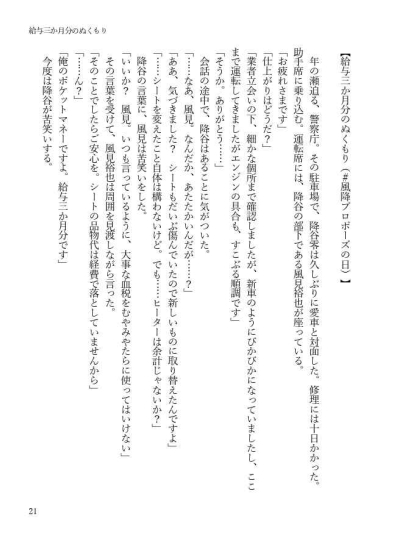 給与三か月分のぬくもり
【給与三か月分のぬくもり（#風降プロポーズの日）】
　年の瀬迫る、警察庁。その駐車場で、降谷零は久しぶりに愛車と対面した。修理には十日かかった。
助手席に乗り込む。運転席には、降谷の部下である風見裕也が座っている。
「お疲れさまです」
「仕上がりはどうだ？」
「業者立会いの下、細かな個所まで確認しましたが、新車のようにぴかぴかになっていましたし、ここ
まで運転してきましたがエンジンの具合も、すこぶる順調です」
「そうか。ありがとう……」
　会話の途中で、降谷はあることに気がついた。
「……なあ、風見。なんだか、あたたかいんだが……？」
「ああ、気づきました？　シートもだいぶ傷んでいたので新しいものに取り替えたんですよ」
「……シートを変えたこと自体は構わないけど。でも……ヒーターは余計じゃないか？」
　降谷の言葉に、風見は苦笑いをした。
「いいか？　風見。いつも言っているように、大事な血税をむやみやたらに使ってはいけない」
　その言葉を受けて、風見裕也は周囲を見渡しながら言った。
「そのことでしたらご安心を。シートの品物代は経費で落としていませんから」
「……ん？」
「俺のポケットマネーですよ。給与三か月分です」
　今度は降谷が苦笑いする。
21